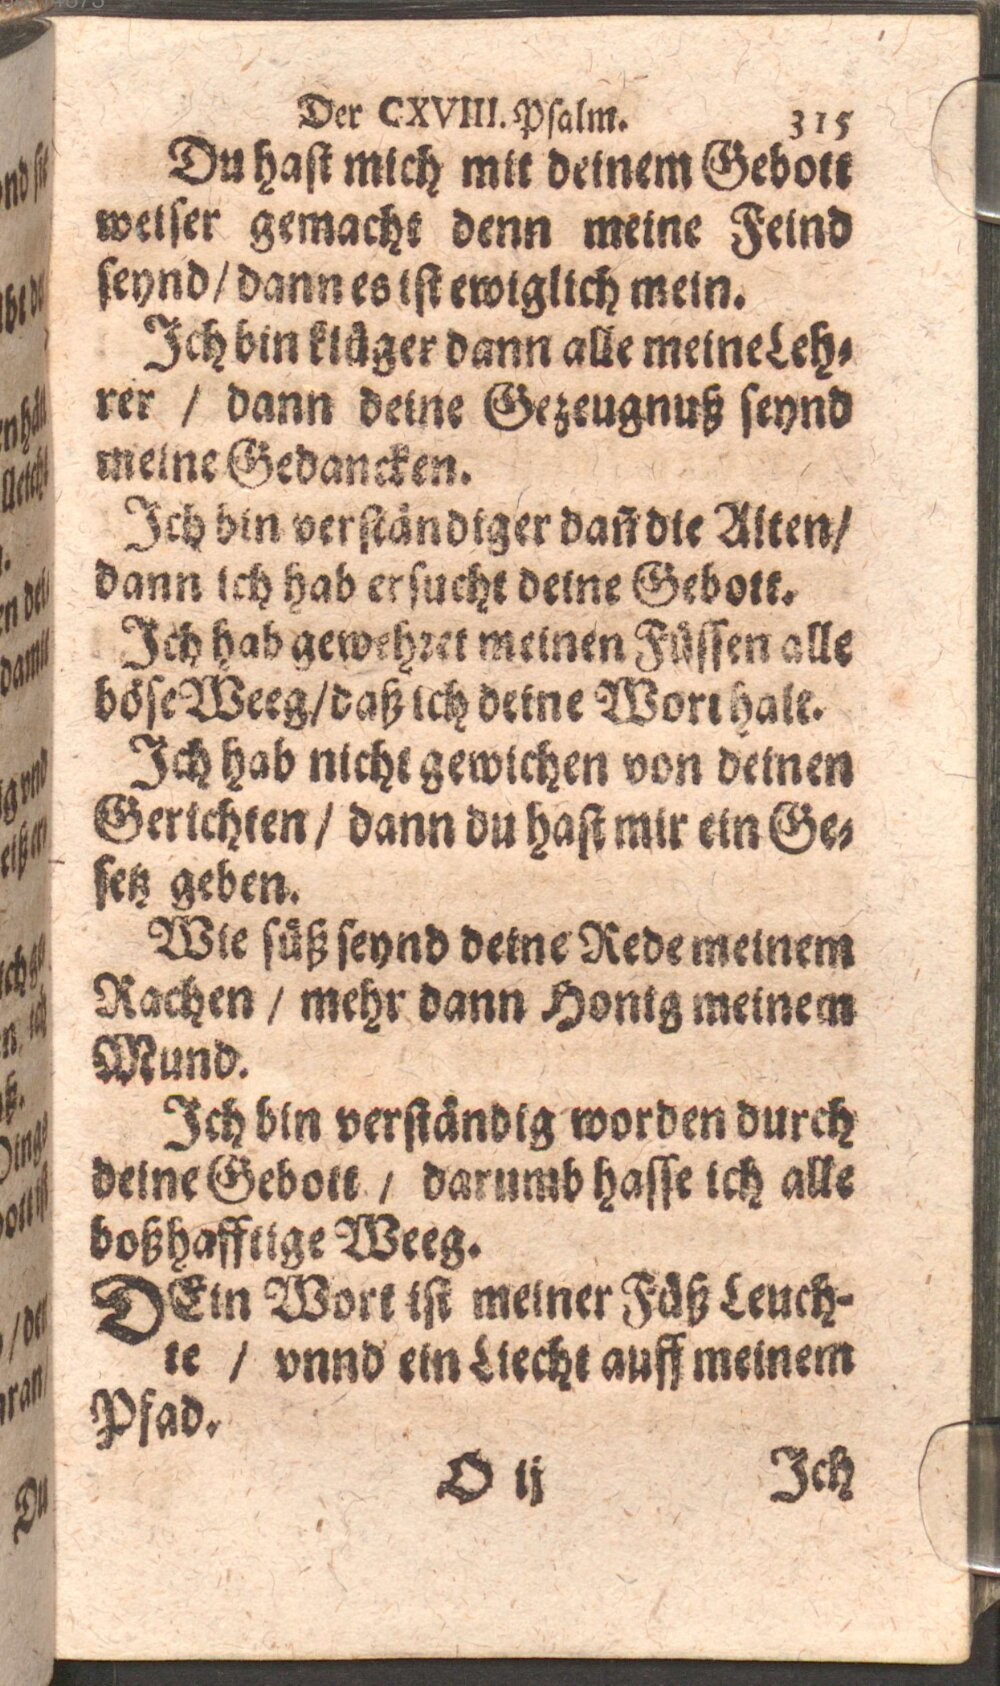 Der CXVIII. Psalm. 315
Du hast mich mit deinem Gebott
weiser gemacht denn meine Feind
seynd / dann es ist ewiglich mein.
Ich bin klüger dann alle meine Leh⸗
rer / dann deine Gezeugnuß seynd
meine Gedancken.
Ich bin verständiger dañ die Alten /
dann ich hab ersucht deine Gebott.
Ich hab gewehret meinen Füssen alle
böse Weeg / daß ich deine Wort halt.
Ich hab nicht gewichen von deinen
Gerichten / dann du hast mir ein Ge⸗
setz geben.
Wie süß seynd deine Rede meinem
Rachen / mehr dann Honig meinem
Mund.
Ich bin verständig worden durch
deine Gebott / darumb hasse ich alle
boßhafftige Weeg.
DEin Wort ist meiner Füß Leuch-
te / vnnd ein Liecht auff meinem
Pfad.
O ij Ich